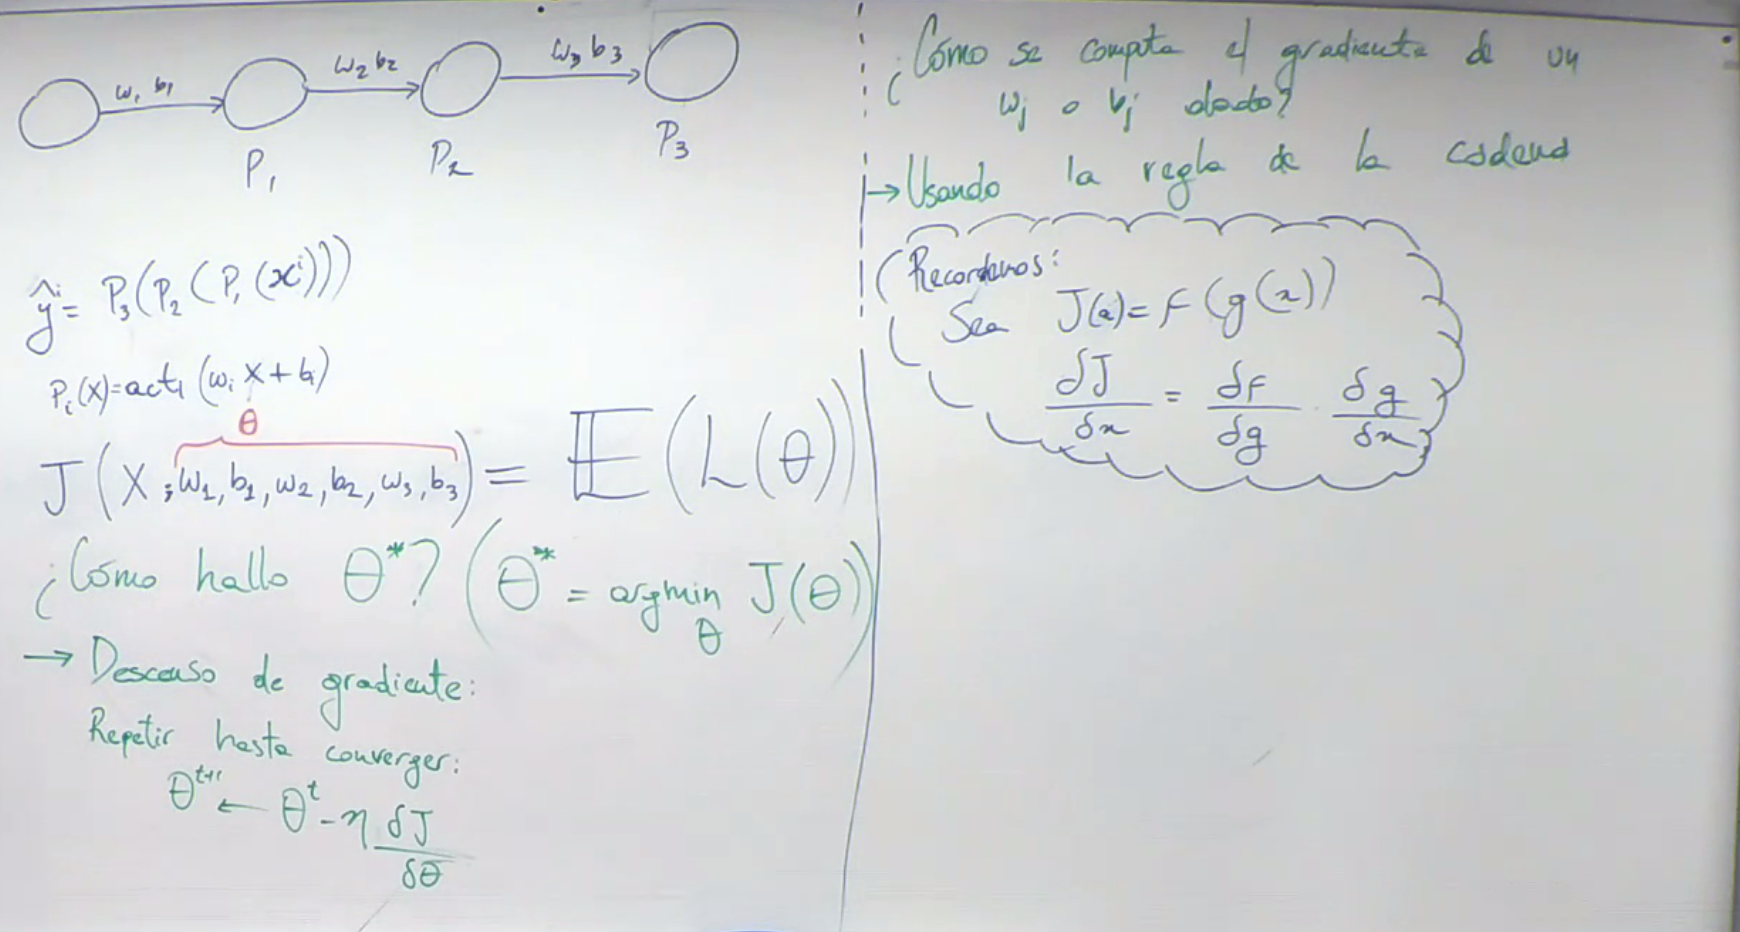 w₁ b₁
w₂ b₂
w₃ b₃
P₁
P₂
P₃
ŷⁱ = P₃(P₂(P₁(xⁱ)))
Pᵢ(x)=actᵢ(wᵢ x + bᵢ)
θ
J(X; w₁, b₁, w₂, b₂, w₃, b₃) = 𝔼(L(θ))
¿Cómo hallo θ*? (θ* = argmin J(θ))
θ
→ Descenso de gradiente:
Repetir hasta converger:
θᵗ⁺¹ ← θᵗ - η δJ/δθ
¿Cómo se computa el gradiente de un
wⱼ o bⱼ dado?
→ Usando la regla de la cadena
Recordemos:
Sea J(x) = f(g(x))
δJ/δx = δf/δg · δg/δx